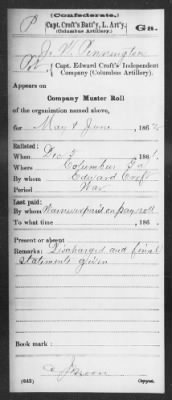 (Confederate.)
P Capt. Croft's Batt'y, L. Art'y. Ga.
(Columbus Artillery.)
J. W. Pennington
Pvt, Capt. Edward Croft's Independent
Company (Columbus Artillery).
Appears on
Company Muster Roll
of the organization named above,
for May & June, 1862.
Enlisted:
When Dec 5, 1861.
Where Columbus Ga
By whom Edward Croft
Period War
Last paid:
By whom
To what time , 186 .
Present or absent
Remarks: Discharged and final
statements given
Book mark:
(642) Copyist.